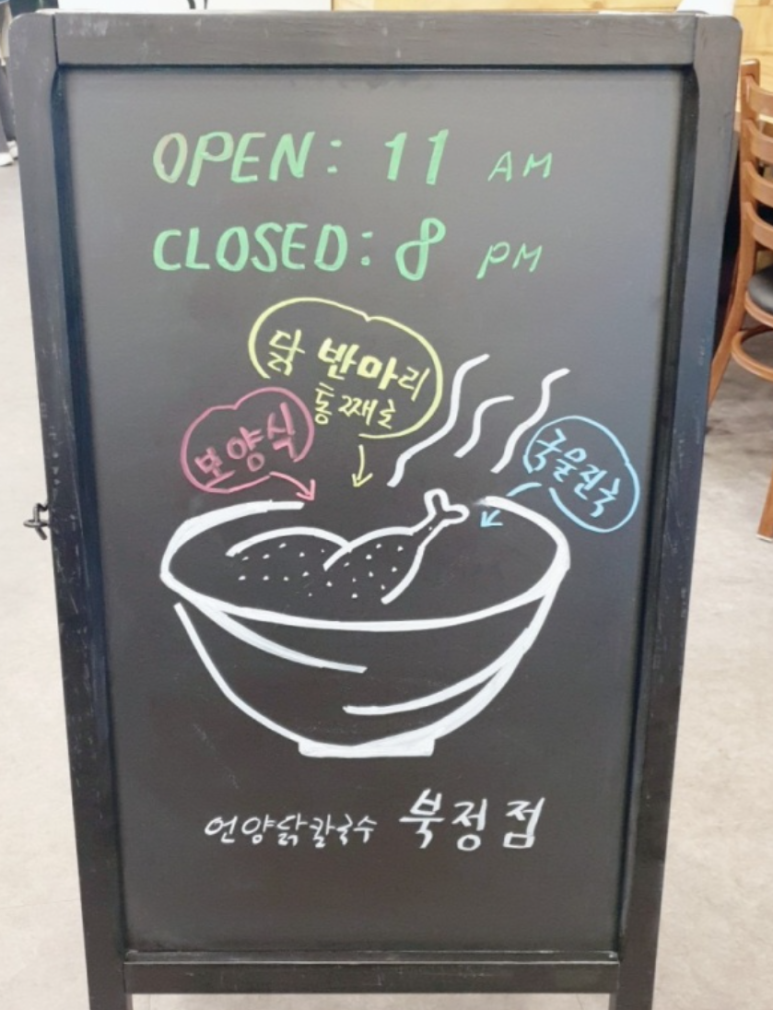 OPEN: 11 AM
CLOSED: 8 PM
닭 반마리
통째로
보양식
국물진국
언양닭칼국수 북정점